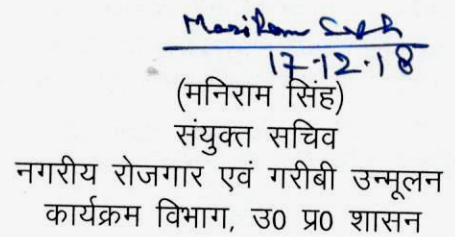 Maniram Singh
17-12-18
(मनिराम सिंह)
संयुक्त सचिव
नगरीय रोजगार एवं गरीबी उन्मूलन
कार्यक्रम विभाग, उ0 प्र0 शासन